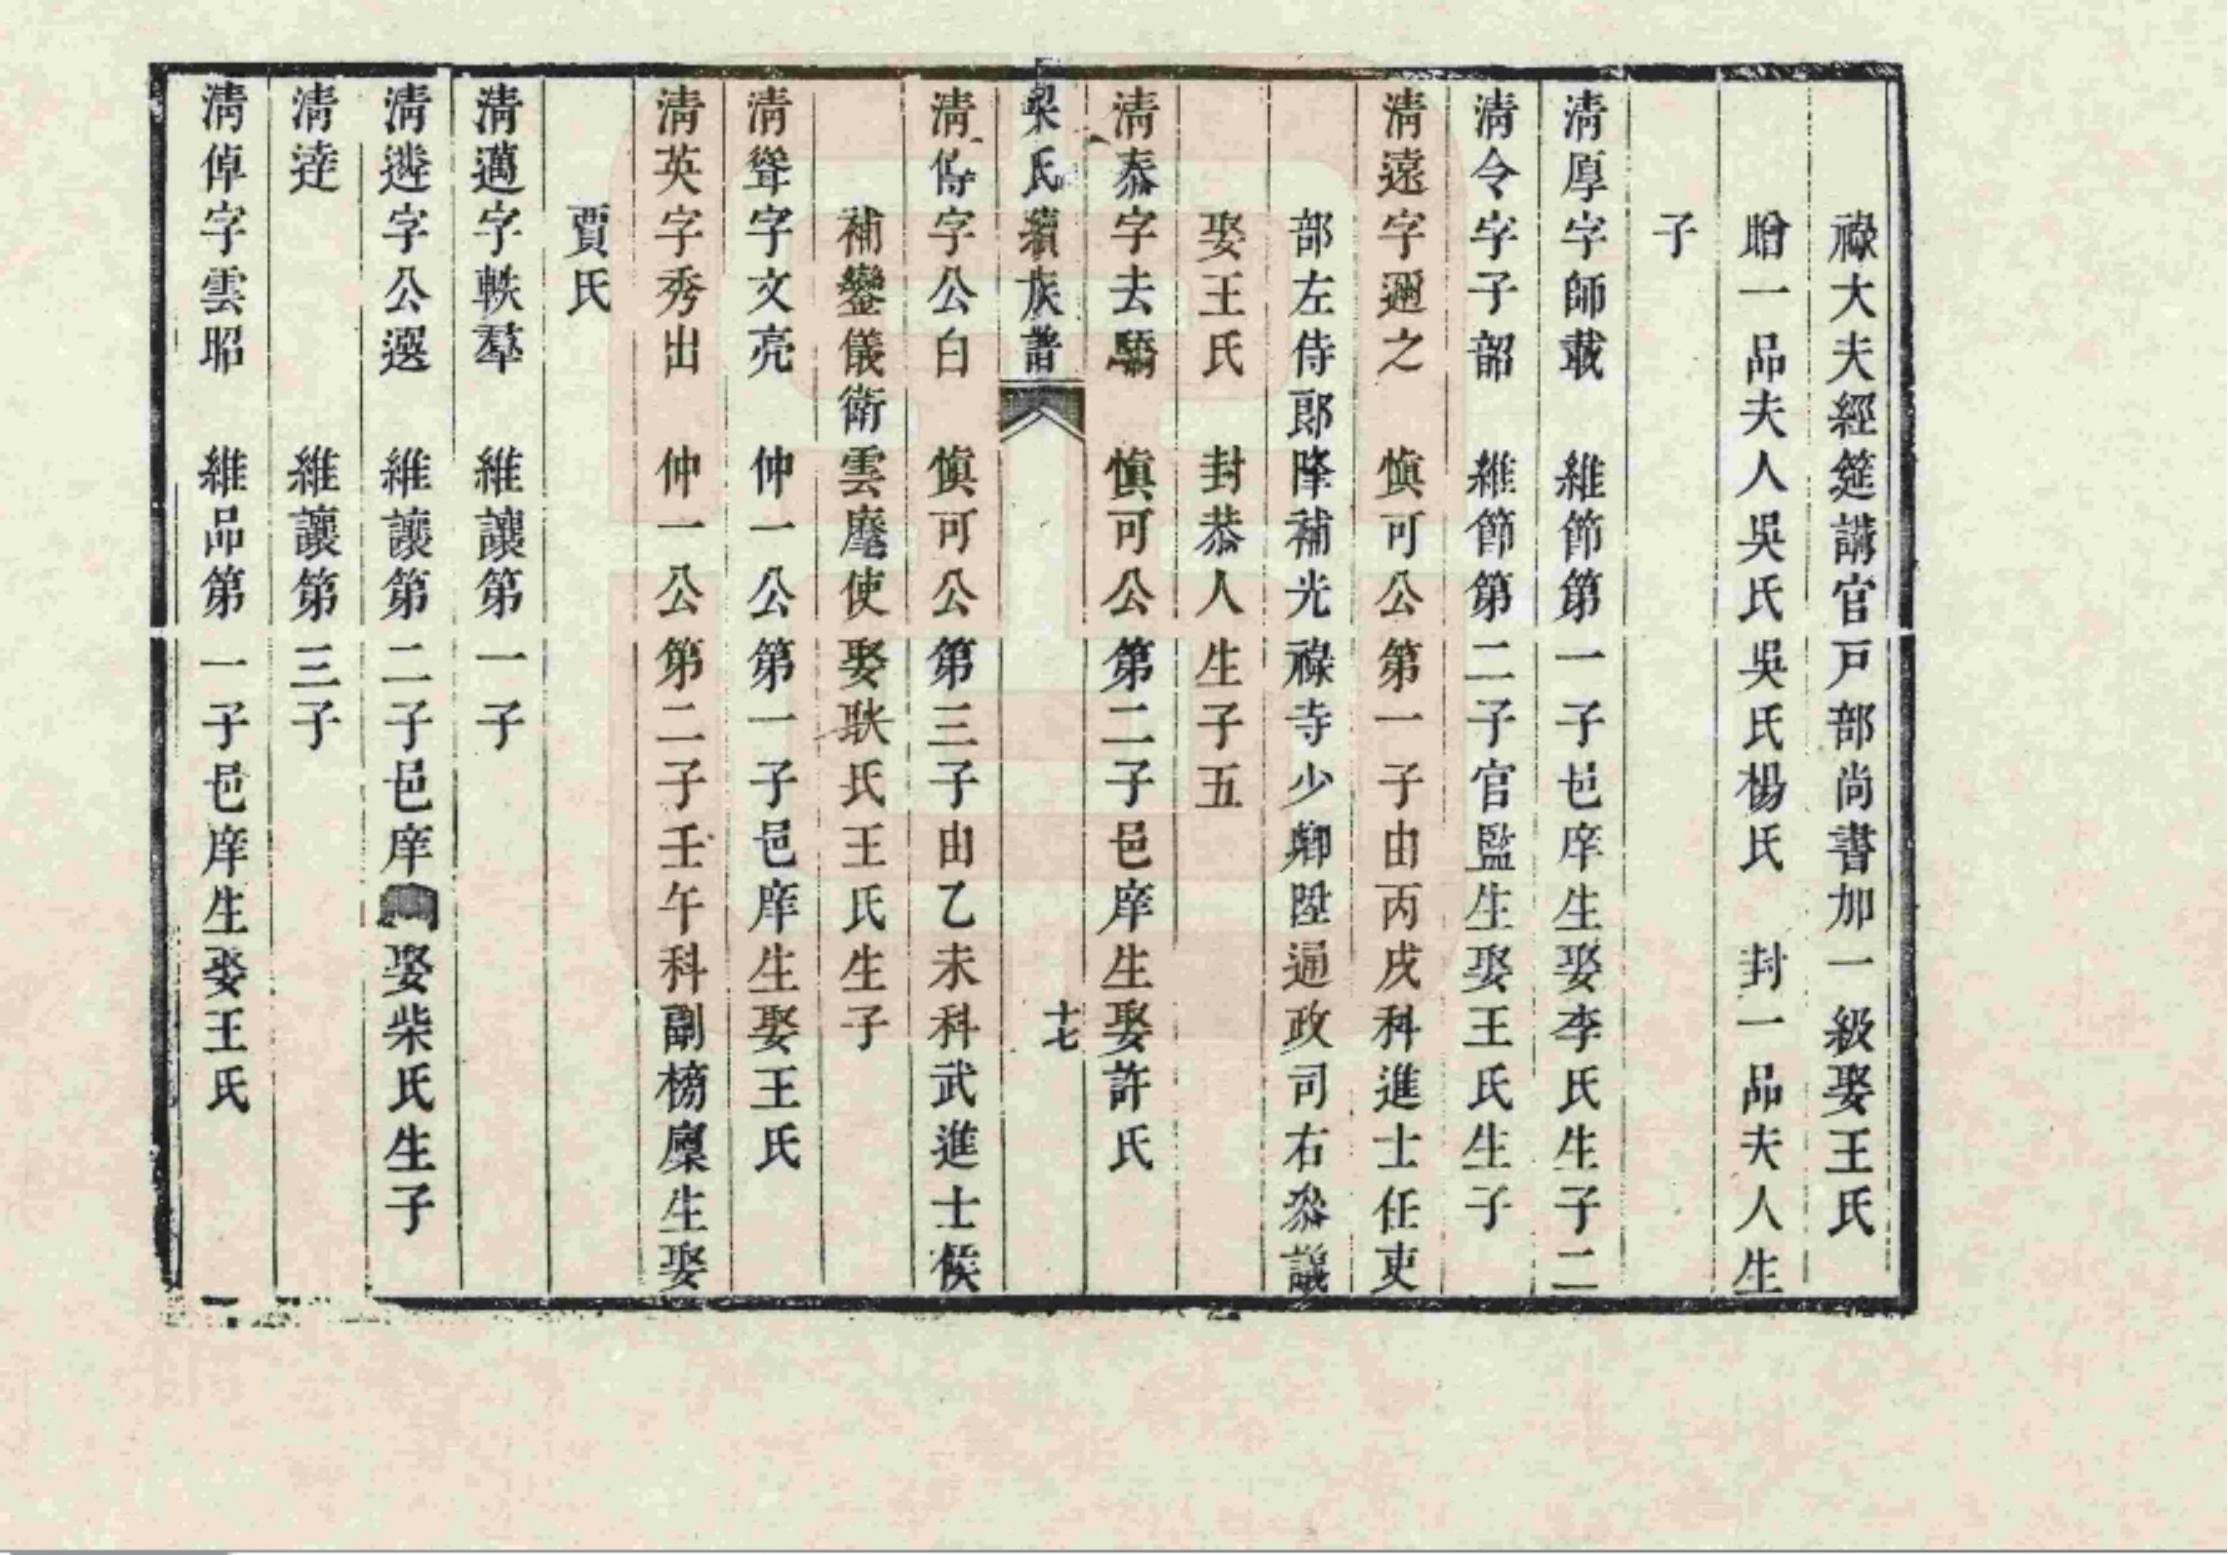 祿大夫經筵講官戸部尚書加一級娶王氏
贈一品夫人吳氏吳氏楊氏　封一品夫人生
子
淸厚字師載　維節第一子邑庠生娶李氏生子二
淸令字子韶　維節第二子官監生娶王氏生子
淸遠字邇之　愼可公第一子由丙戌科進士任吏
部左侍郎降補光祿寺少卿陞通政司右叅議
娶王氏　封恭人生子五
淸泰字去驕　愼可公第二子邑庠生娶許氏
梁氏續族譜　十七
淸傳字公白　愼可公第三子由乙未科武進士候
補鑾儀衛雲麾使娶耿氏王氏生子
淸聳字文亮　仲一公第一子邑庠生娶王氏
淸英字秀出　仲一公第二子壬午科副榜廩生娶
賈氏
淸邁字軼羣　維讓第一子
淸遴字公選　維讓第二子邑庠娶柴氏生子
淸逵　維讓第三子
淸倬字雲昭　維品第一子邑庠生娶王氏